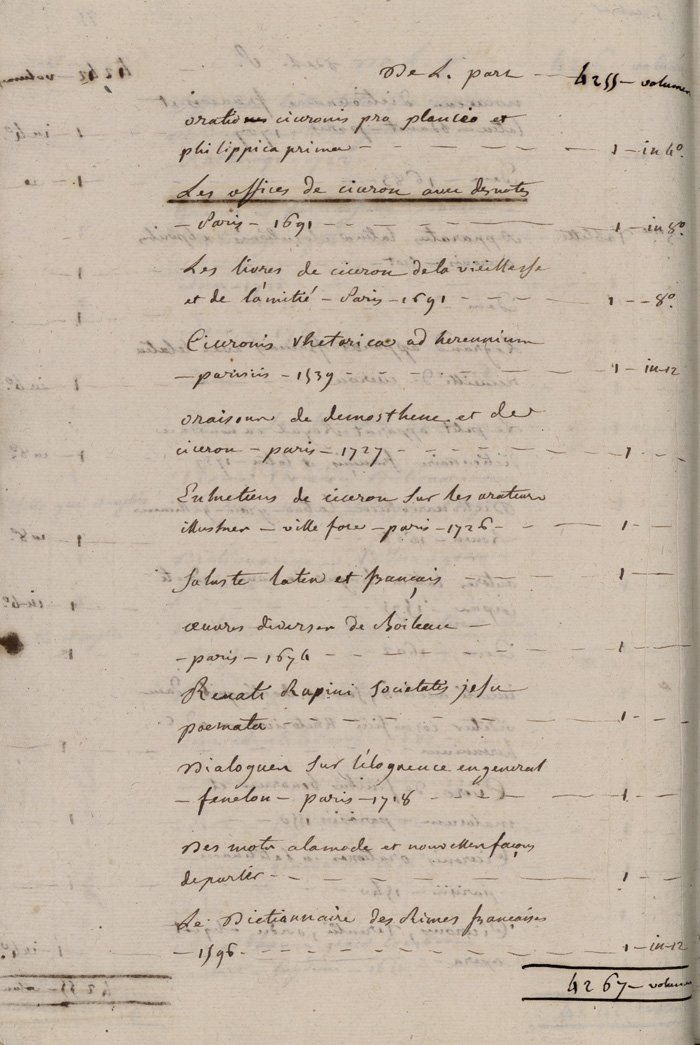 De L. part — 4255 — volumes
orationes ciceronis pro plancio et
philippica prima — 1 — in 4°.
Les offices de ciceron avec des notes
— Paris — 1691 — 1 — in 8°.
Les livres de ciceron de la vieillesse
et de l'amitié — Paris — 1691 — 1 — 8°.
Ciceronis rhetorica ad herennium
— parisiis — 1539 — 1 — in-12
oraisons de demosthene et de
ciceron — paris — 1727 — 1 —
Entretiens de ciceron sur les orateurs
illustres — ville fore — paris — 1726 — 1 —
Saluste latin et français — 1 —
œuvres diverses de Boileau —
— paris — 1674 — 1 —
Renati Rapini Societatis jesu
poemata — 1 —
Dialogues sur l'éloquence en general
— fenelon — paris — 1718 — 1 —
Des mots alamode et nouvelles façons
de parler — 1 —
Le Dictionnaire des Rimes françaises
— 1596 — 1 — in-12
4267 — volumes